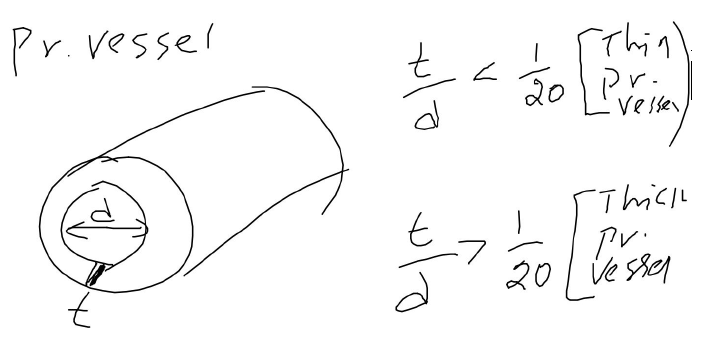 Pr. vessel
t/d < 1/20 [Thin
Pr.
vessel)
d
t
t/d > 1/20 [Thick
Pr.
vessel